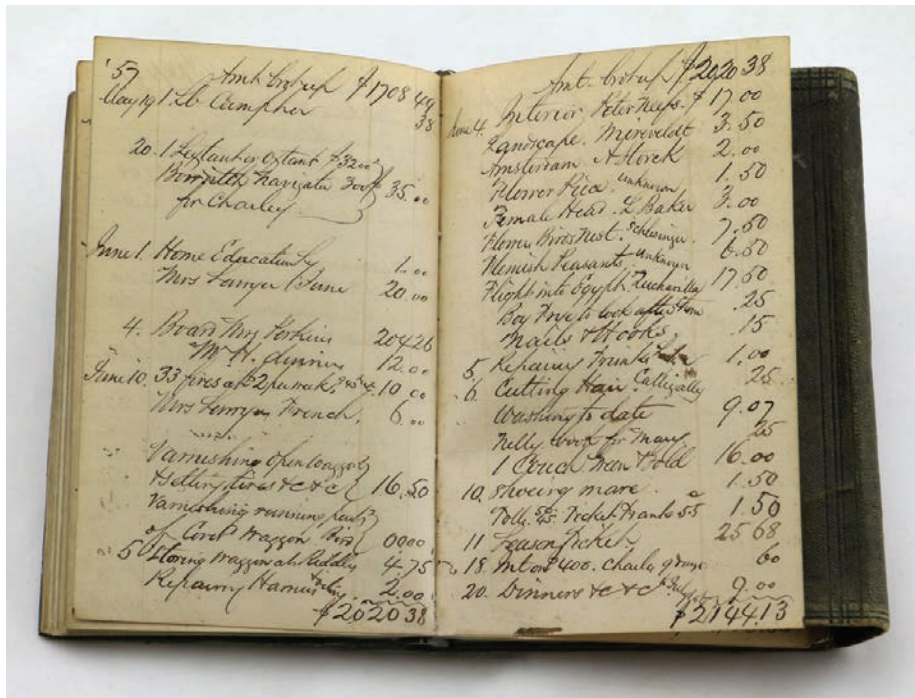 '57 Amt brot up $1708 49
May 19 1 Lb Camphor 38
20. 1 Sextant or Octant $32 00
Navigator 300 35.00
for Charley
June 1. Home Education by 1.00
Mrs Sawyer 1 June 20.00
4. Board Mrs Perkins 204 26
Mr H. dinner 12.00
June 10. 33 fires at $2 per week, 10 00
Mrs Sawyer, French, 6.00
Varnishing open waggon
& setting tires &c &c 16.50
Varnishing running parts
of Cov'd Waggon 0000
5 Storing waggon at 4 75
Repairing Harness 2.00
$2020 38
Amt. brot up $2020 38
June 4. Interior, Peter Neefs. $17.00
Landscape. Mireveldt 3.50
Amsterdam A Storck 2.00
Flower Piece. unknown 1.50
Female Head. L Baker 3.00
Flower Birds Nest. Schlesinger. 7.50
Flemish Peasants. unknown 6.50
Flight into Egypt. 17.50
Boy Frye to look after 25
Nails & Hooks. .15
5 Repairing Trunk 1.00
6. Cutting Hair. 25
Washing to date 9.07
Nelly book for Mary 25
1 Couch Green & Gold 16.00
10. Shoeing mare. 1.50
Tolls Ticket 55 1.50
11 Season Ticket. 25 68
18. Int on $400. Charles 60
20. Dinners &c &c 9.00
$2144.13